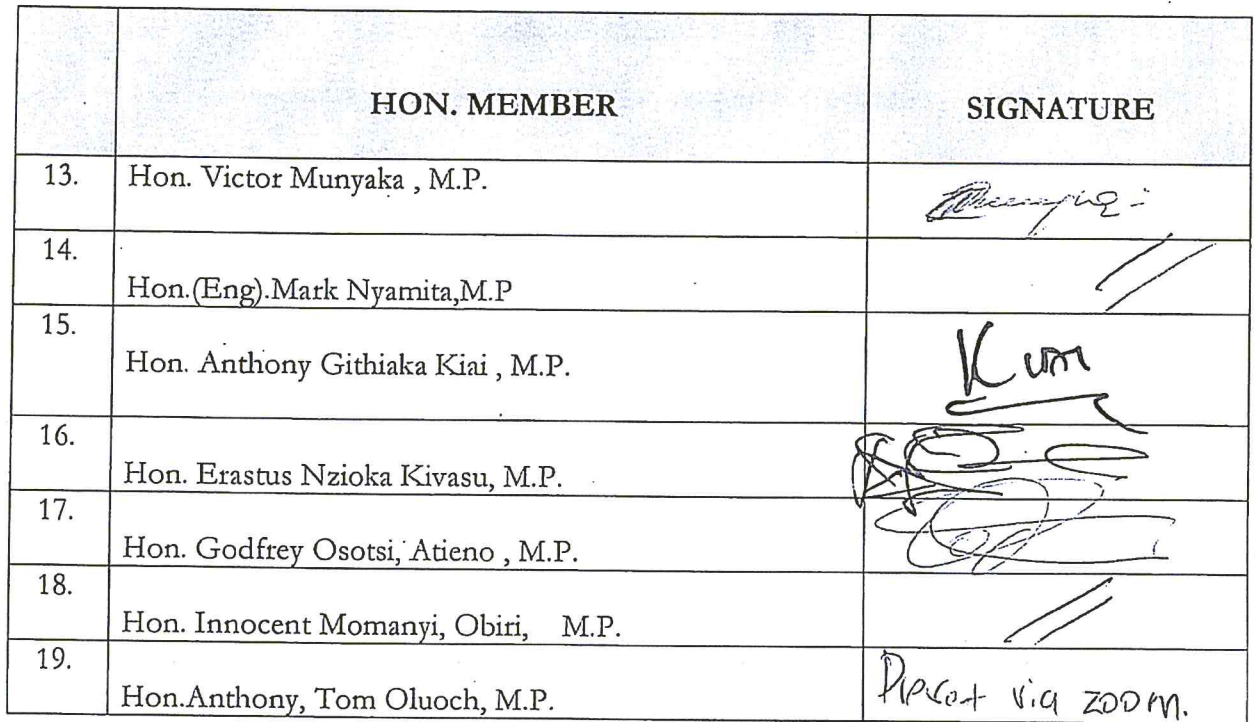 HON. MEMBER SIGNATURE
13. Hon. Victor Munyaka , M.P.
14. Hon.(Eng).Mark Nyamita,M.P
15. Hon. Anthony Githiaka Kiai , M.P.
16. Hon. Erastus Nzioka Kivasu, M.P.
17. Hon. Godfrey Osotsi, Atieno , M.P.
18. Hon. Innocent Momanyi, Obiri, M.P.
19. Hon.Anthony, Tom Oluoch, M.P. Present via zoom.